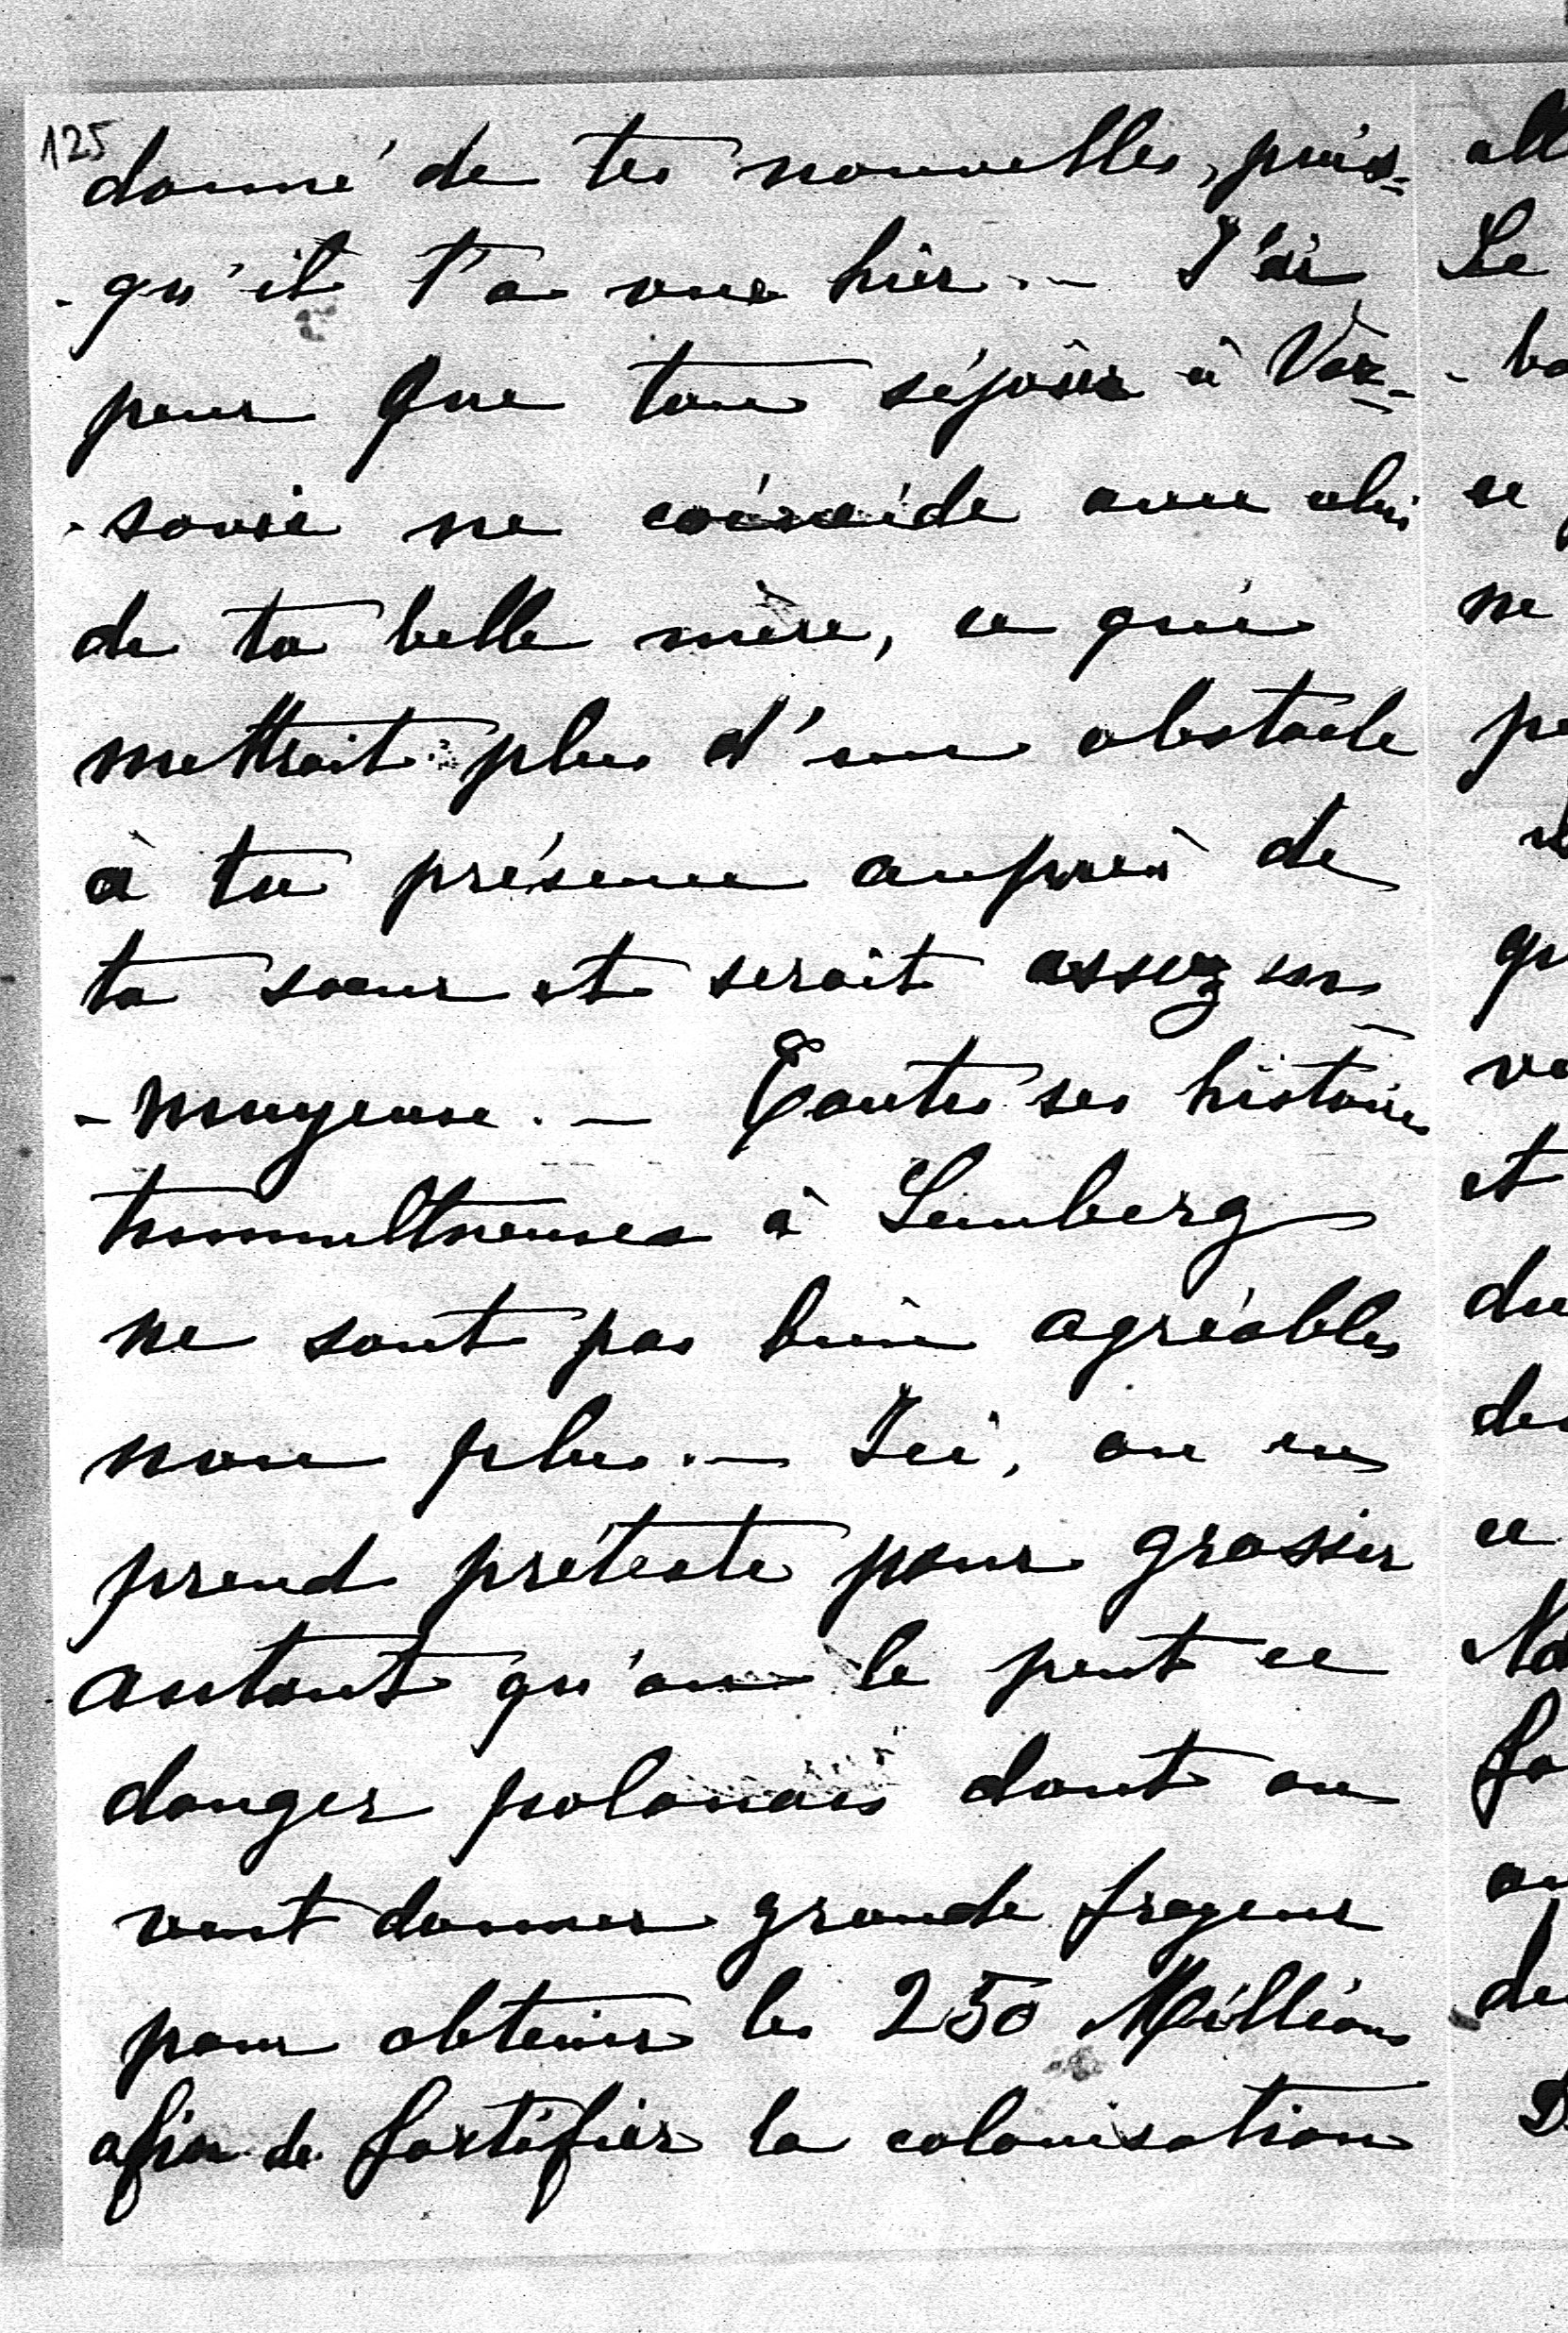 125
donné de tes nouvelles, puis-
-qu'il t'a vue hier. — J'ai
peur que ton séjour à Var-
-sovie ne coïncide avec celui
de ta belle mère, ce qui
mettrait plus d'un obstacle
à ta présence auprès de
ta soeur et serait assez en-
-nuyeuse. — Toutes ses histoires
tumultueuses à Lemberg
ne sont pas bien agréables
non plus. — Ici, on en
prend prétexte pour grossir
autant qu'on le peut ce
danger polonais dont on
veut donner grande frayeur
pour obtenir les 250 Millions
afin de fortifier la colonisation